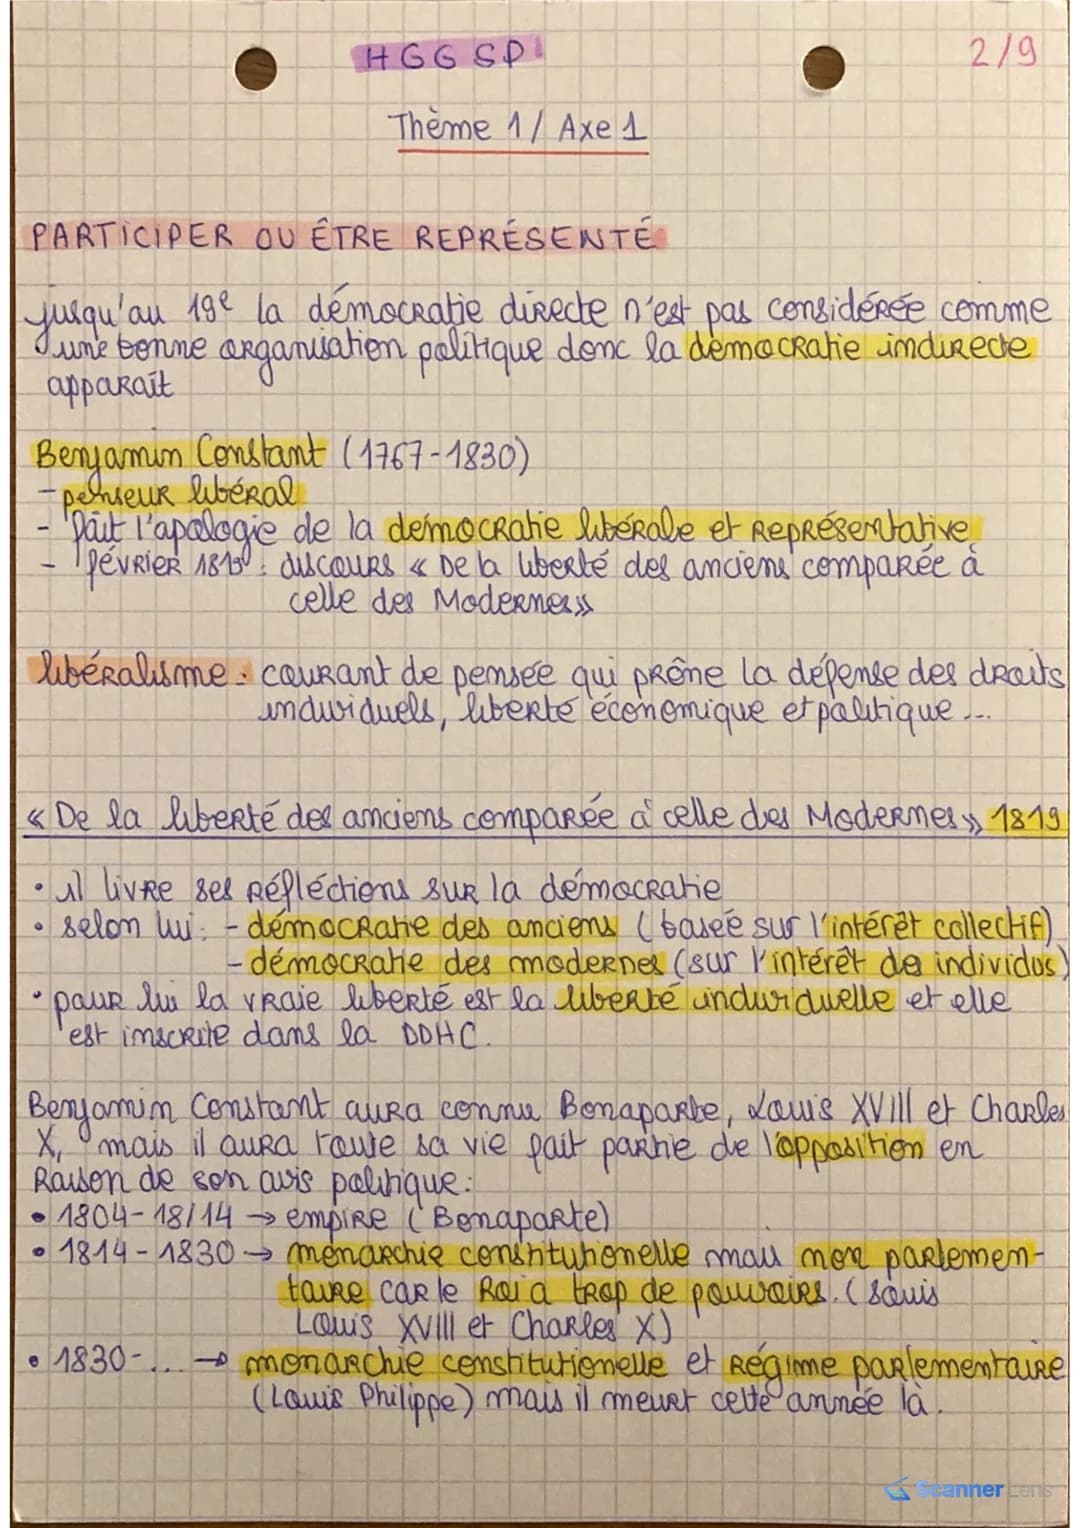 HGGSP
2/9
Thème 1 / Axe 1
PARTICIPER OU ÊTRE REPRÉSENTÉ
jusqu'au 19e la démocratie directe n'est pas considérée comme
une bonne organisation politique donc la démocratie indirecte
apparaît
Benjamin Constant (1767-1830)
- penseur libéral
- fait l'apologie de la démocratie libérale et représentative
- février 1819 : discours « De la liberté des anciens comparée à
celle des Modernes »
libéralisme : courant de pensée qui prône la défense des droits
individuels, liberté économique et politique ...
« De la liberté des anciens comparée à celle des Modernes » 1819
• il livre ses réfléctions sur la démocratie
• selon lui : - démocratie des anciens (basée sur l'intérêt collectif)
- démocratie des modernes (sur l'intérêt de individus)
• pour lui la vraie liberté est la liberté individuelle et elle
est inscrite dans la DDHC.
Benjamin Constant aura connu Bonaparte, Louis XVIII et Charles
X, mais il aura toute sa vie fait partie de l'opposition en
raison de son avis politique :
• 1804-18/14 → empire (Bonaparte)
• 1814-1830 → monarchie constitutionelle mais non parlemen-
taire car le Roi a trop de pouvoirs. (sauis
Louis XVIII et Charles X)
• 1830-... → monarchie constitutionelle et Régime parlementaire
(Louis Philippe) mais il meurt cette année là.
Scanner Lens